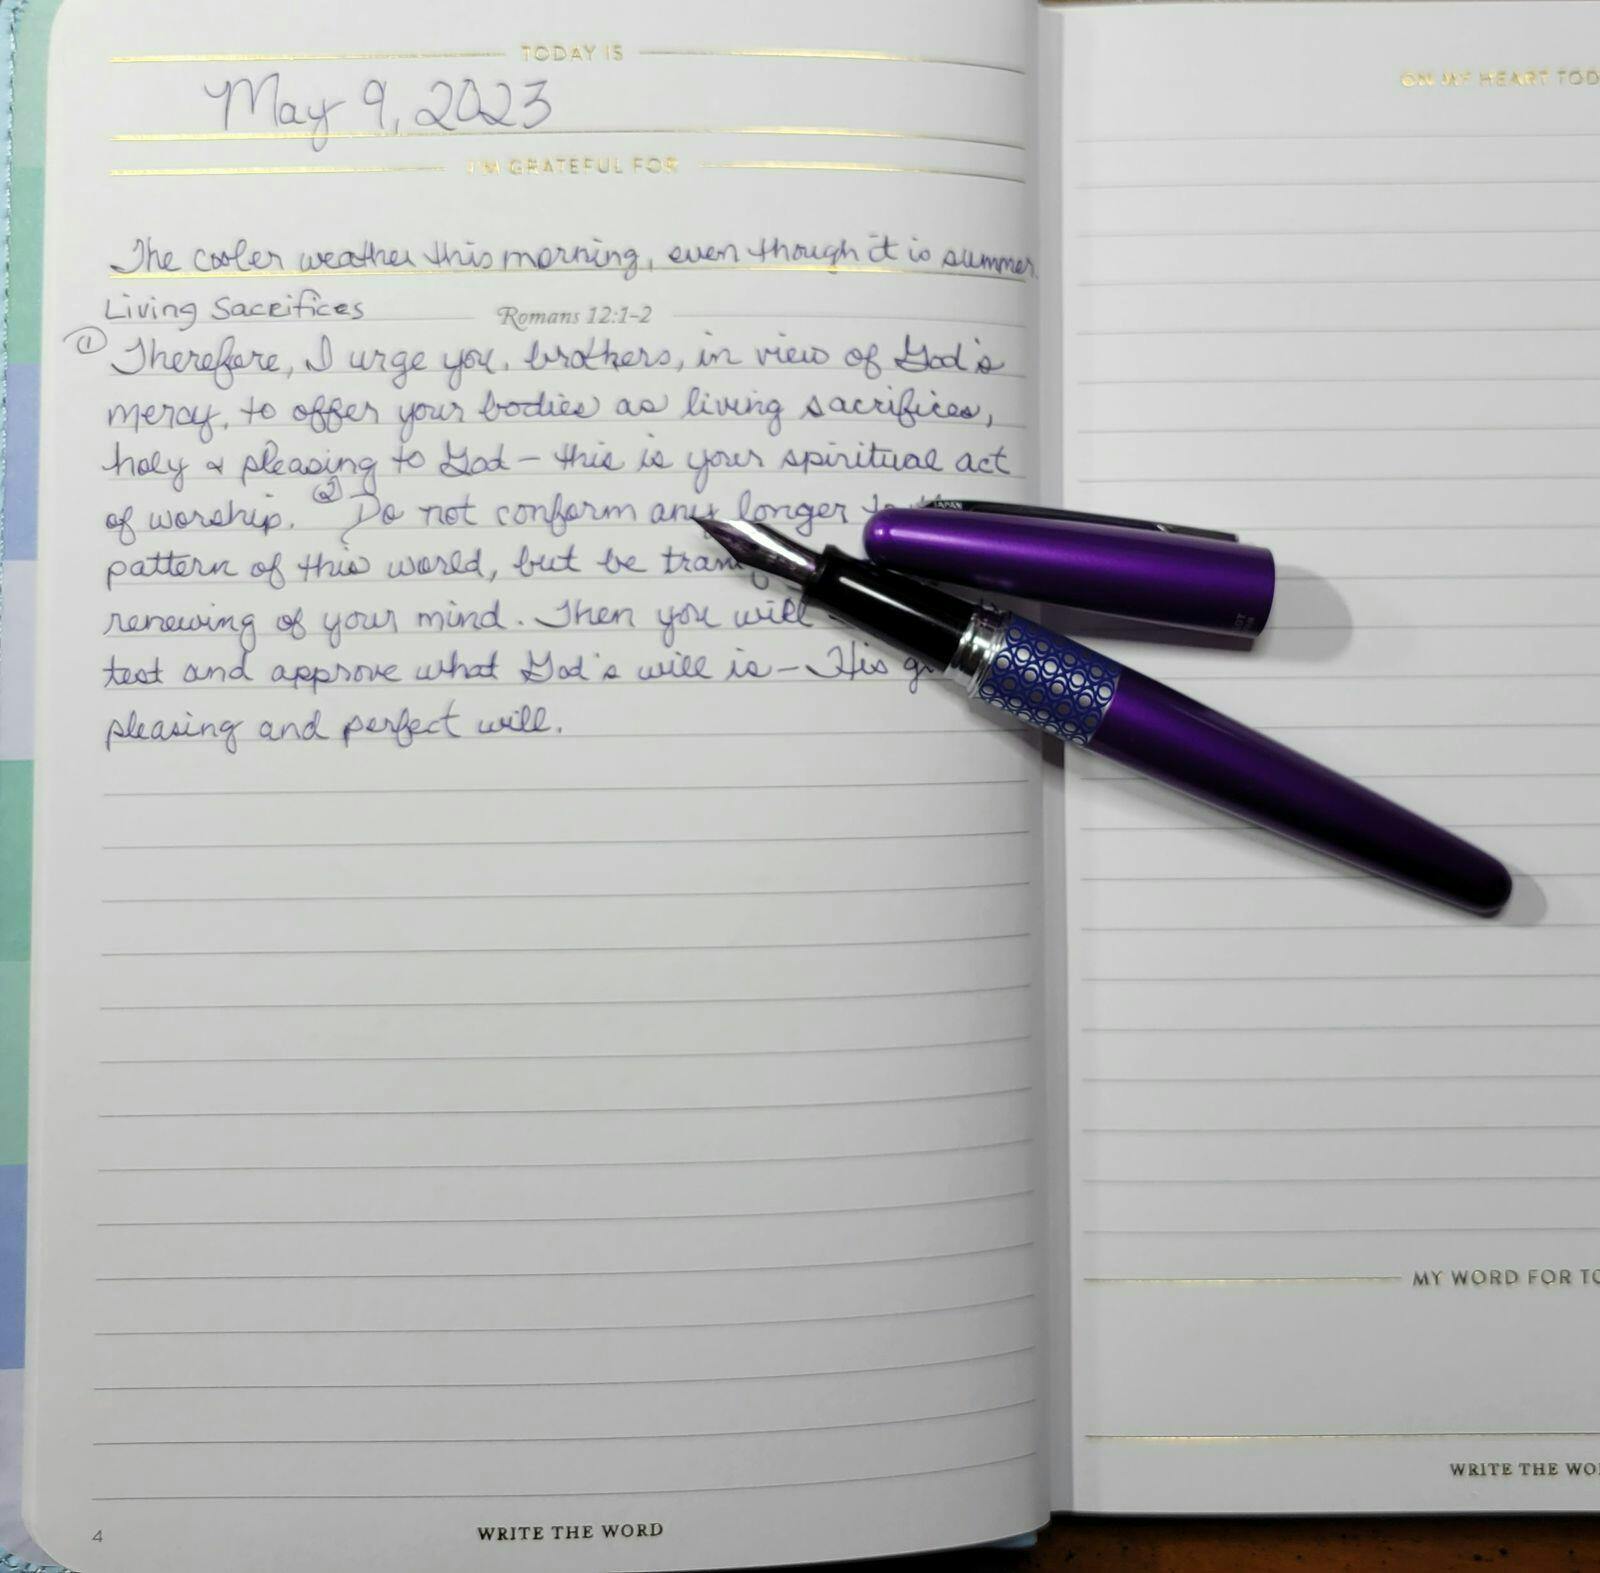 TODAY IS
May 9, 2023
I'M GRATEFUL FOR
The cooler weather this morning, even though it is summer.
Living Sacrifices
Romans 12:1-2
① Therefore, I urge you, brothers, in view of God's
mercy, to offer your bodies as living sacrifices,
holy & pleasing to God – this is your spiritual act
of worship. ② Do not conform any longer to
pattern of this world, but be
renewing of your mind. Then you will
test and approve what God's will is – His
pleasing and perfect will.
4
WRITE THE WORD
ON MY HEART TOD
MY WORD FOR TO
WRITE THE WO
JAPAN